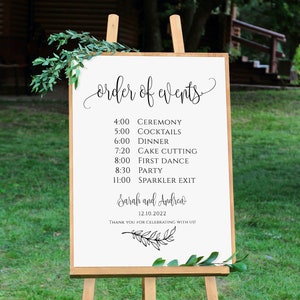 order of events
4:00 Ceremony
5:00 Cocktails
6:00 Dinner
7:20 Cake cutting
8:00 First dance
8:30 Party
11:00 Sparkler exit
Sarah and Andrew
12.10.2022
Thank you for celebrating with us!